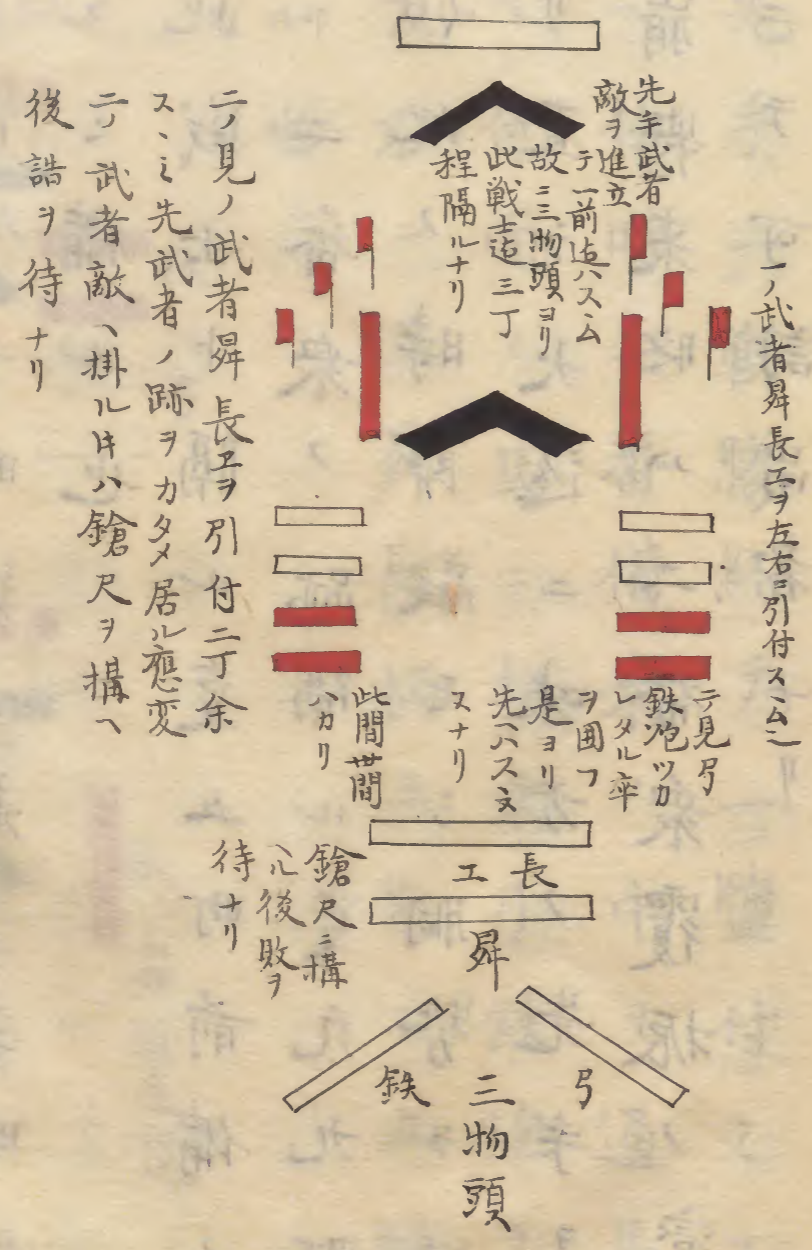 一ノ武者昇長エヲ左右ニ引付スヽム也
先手武者
敵ヲ進立
テ一前迄ハスヽム
故ニ三物頭ヨリ
此戦士迄三丁
程隔ルナリ
二ノ見ノ武者昇長エヲ引付二丁余
スヽミ先武者ノ跡ヲカタメ居ル應変
二ノ武者敵ヘ掛ルトキハ鎗尺ヲ構ヘ
後詰ヲ待ナリ
二見弓
鉄炮ツカ
レタル卒
ヲ囲フ
是ヨリ
先ヘハス
スナリ
此間丗間
ハカリ
長エ
鎗尺ニ構
ヘル後敗ヲ
待ナリ
昇
弓
鉄
三物頭